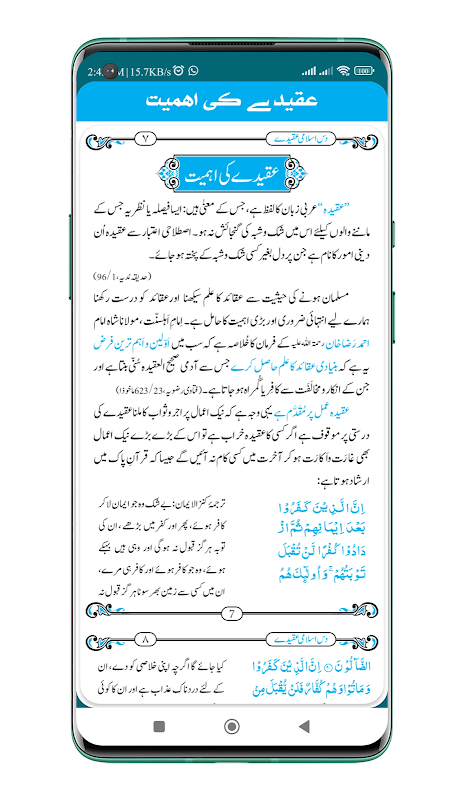 2:4 M | 15.7KB/s
عقیدے کی اھمیت
دس اسلامی عقیدے
۷
عقیدے کی اہمیت
”عقیدہ“ عربی زبان کا لفظ ہے، جس کے معنیٰ ہیں: ایسا فیصلہ یا نظریہ جس کے
ماننے والوں کیلئے اس میں شک وشبہ کی گنجائش نہ ہو۔ اصطلاحی اعتبار سے عقیدہ اُن
دینی امور کا نام ہے جن پر دل بغیر کسی شک وشبہ کے پختہ ہو جائے۔
(حدیقہ ندیہ،1/96)
مسلمان ہونے کی حیثیت سے عقائد کا علم سیکھنا اور عقائد کو درست رکھنا
ہمارے لیے انتہائی ضروری اور بڑی اہمیت کا حامل ہے۔ امامِ اہلسنّت، مولانا شاہ امام
احمد رَضا خان رحمۃ اللہ علیہ کے فرمان کا خُلاصہ ہے کہ سب میں اَوّلین و اہم ترین فرض
یہ ہے کہ بنیادی عقائد کا علم حاصل کرے جس سے آدمی صحیحُ العقیدہ سُنّی بنتا ہے اور
جن کے انکار و مخالَفت سے کافِر یا گُمراہ ہو جاتا ہے۔ (فتاوی رضویہ،23/623 ماخوذا)
عقیدہ عمل پر مُقدَّم ہے یہی وجہ ہے کہ نیک اعمال پر اجر و ثواب کا ملنا عقیدے کی
درستی پر موقوف ہے اگر کسی کا عقیدہ خراب ہے تو اس کے بڑے بڑے نیک اعمال
بھی غارت و اکارت ہو کر آخرت میں کسی کام نہ آئیں گے جیسا کہ قرآنِ پاک میں
ارشاد ہوتا ہے:
اِنَّ الَّذِیْنَ كَفَرُوْا
بَعْدَ اِیْمَانِهِمْ ثُمَّ ازْ
دَادُوْا كُفْرًا لَّنْ تُقْبَلَ
تَوْبَتُهُمْۚ وَ اُولٰٓىٕكَ هُمُ
ترجمۂ کنز الایمان: بے شک وہ جو ایمان لا کر
کافر ہوئے، پھر اور کفر میں بڑھے، ان کی
توبہ ہرگز قبول نہ ہو گی اور وہی ہیں بہکے
ہوئے، وہ جو کافر ہوئے اور کافر ہی مرے،
ان میں کسی سے زمین بھر سونا ہرگز قبول نہ
7
دس اسلامی عقیدے
۸
الضَّآلُّوْنَ۝ اِنَّ الَّذِیْنَ كَفَرُوْا
وَ مَاتُوْا وَ هُمْ كُفَّارٌ فَلَنْ یُّقْبَلَ مِنْ
کیا جائے گا اگرچہ اپنی خلاصی کو دے، ان
کے لئے دردناک عذاب ہے اور ان کا کوئی